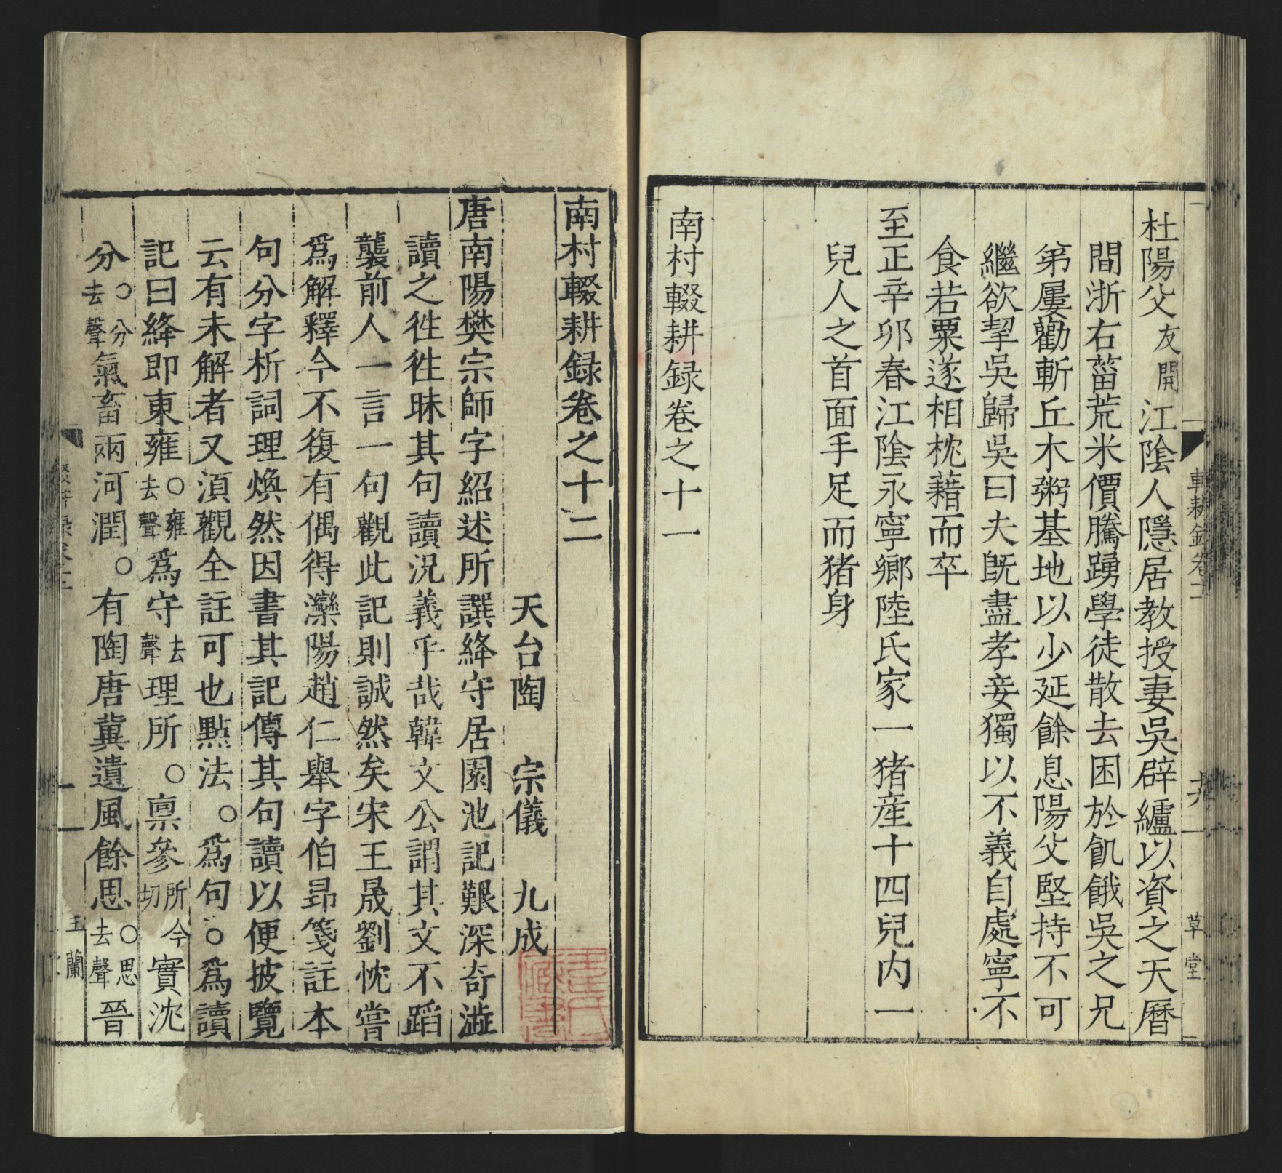 杜陽父友開江陰人隱居教授妻吳辟纑以資之天曆
間浙右菑荒米價騰踴學徒散去困於飢餓吳之兄
弟屢勸斬丘木粥基地以少延餘息陽父堅持不可
繼欲挈吳歸吳曰夫旣盡孝妾獨以不義自處寧不
食若粟遂相枕藉而卒
至正辛卯春江陰永寧鄉陸氏家一猪產十四兒內一
兒人之首面手足而猪身
南村輟耕録卷之十一
草堂
南村輟耕録卷之十二
天台陶 宗儀 九成
唐南陽樊宗師字紹述所譔絳守居園池記艱深奇澁
讀之徃徃昧其句讀況義乎哉韓文公謂其文不蹈
襲前人一言一句觀此記則誠然矣宋王晟劉忱嘗
爲解釋今不復有偶得灤陽趙仁舉字伯昻箋註本
句分字析詞理煥然因書其記傳其句讀以便披覽
云有未解者又湏觀全註可也點法。爲句○爲讀
記曰絳即東雍○雍去聲爲守去聲理所。禀參所今切實沈
分○分去聲氣畜兩河潤。有陶唐冀遺風餘思○思去聲晉
王蘭